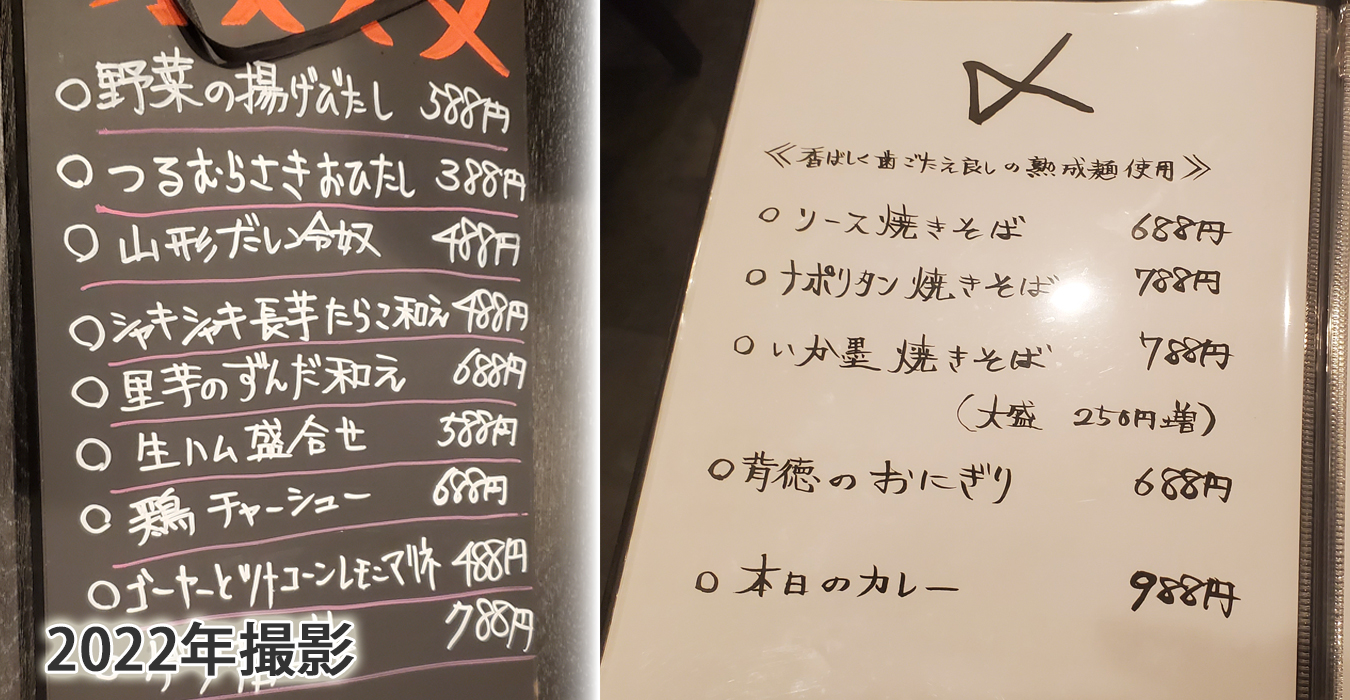 ○野菜の揚げびたし 588円
○つるむらさきおひたし 388円
○山形だし冷奴 488円
○シャキシャキ長芋たらこ和え 488円
○里芋のずんだ和え 688円
○生ハム盛合せ 588円
○鶏チャーシュー 688円
○ゴーヤーとツナコーンレモンマリネ 488円
788円
2022年撮影
〆
≪香ばしく歯ごたえ良しの熟成麺使用≫
○ソース焼きそば 688円
○ナポリタン焼きそば 788円
○いか墨焼きそば 788円
(大盛 250円増)
○背徳のおにぎり 688円
○本日のカレー 988円